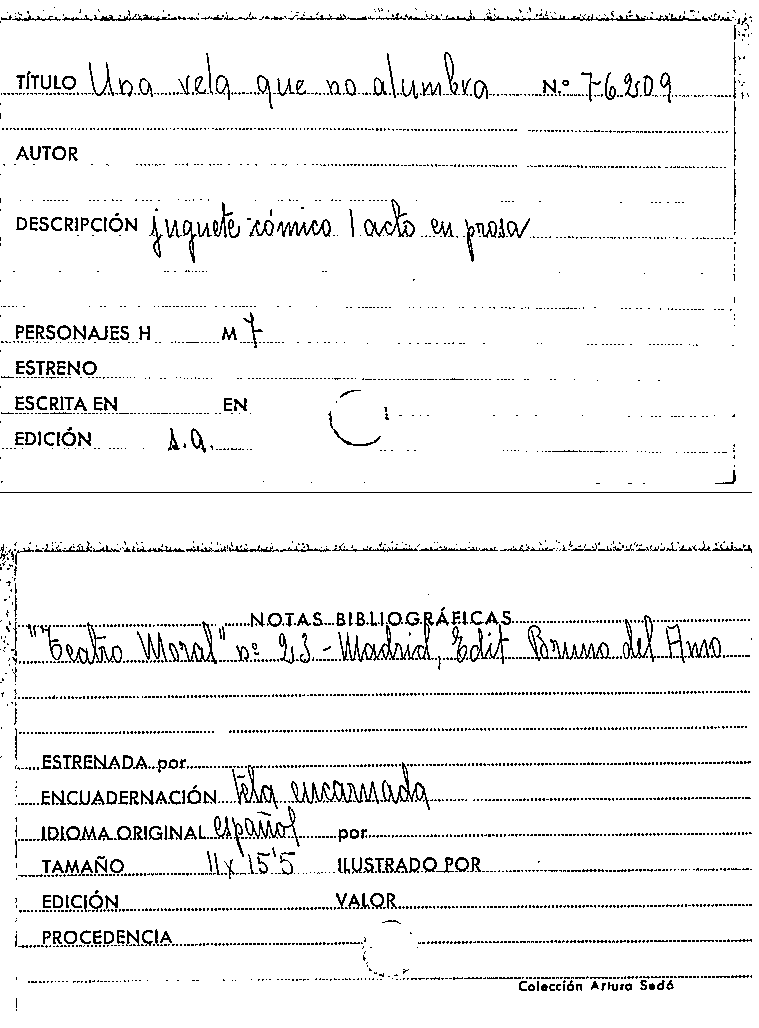 TÍTULO Una vela que no alumbra N.º 76209
AUTOR
DESCRIPCIÓN juguete cómico 1 acto en prosa
PERSONAJES H M 7
ESTRENO
ESCRITA EN EN
EDICIÓN s.a.
NOTAS BIBLIOGRÁFICAS
"Teatro Moral" nº 23 - Madrid, Edit Bruno del Amo
ESTRENADA por
ENCUADERNACIÓN tela encarnada
IDIOMA ORIGINAL español por
TAMAÑO 11 x 15'5 ILUSTRADO POR
EDICIÓN VALOR
PROCEDENCIA
Colección Arturo Sedó